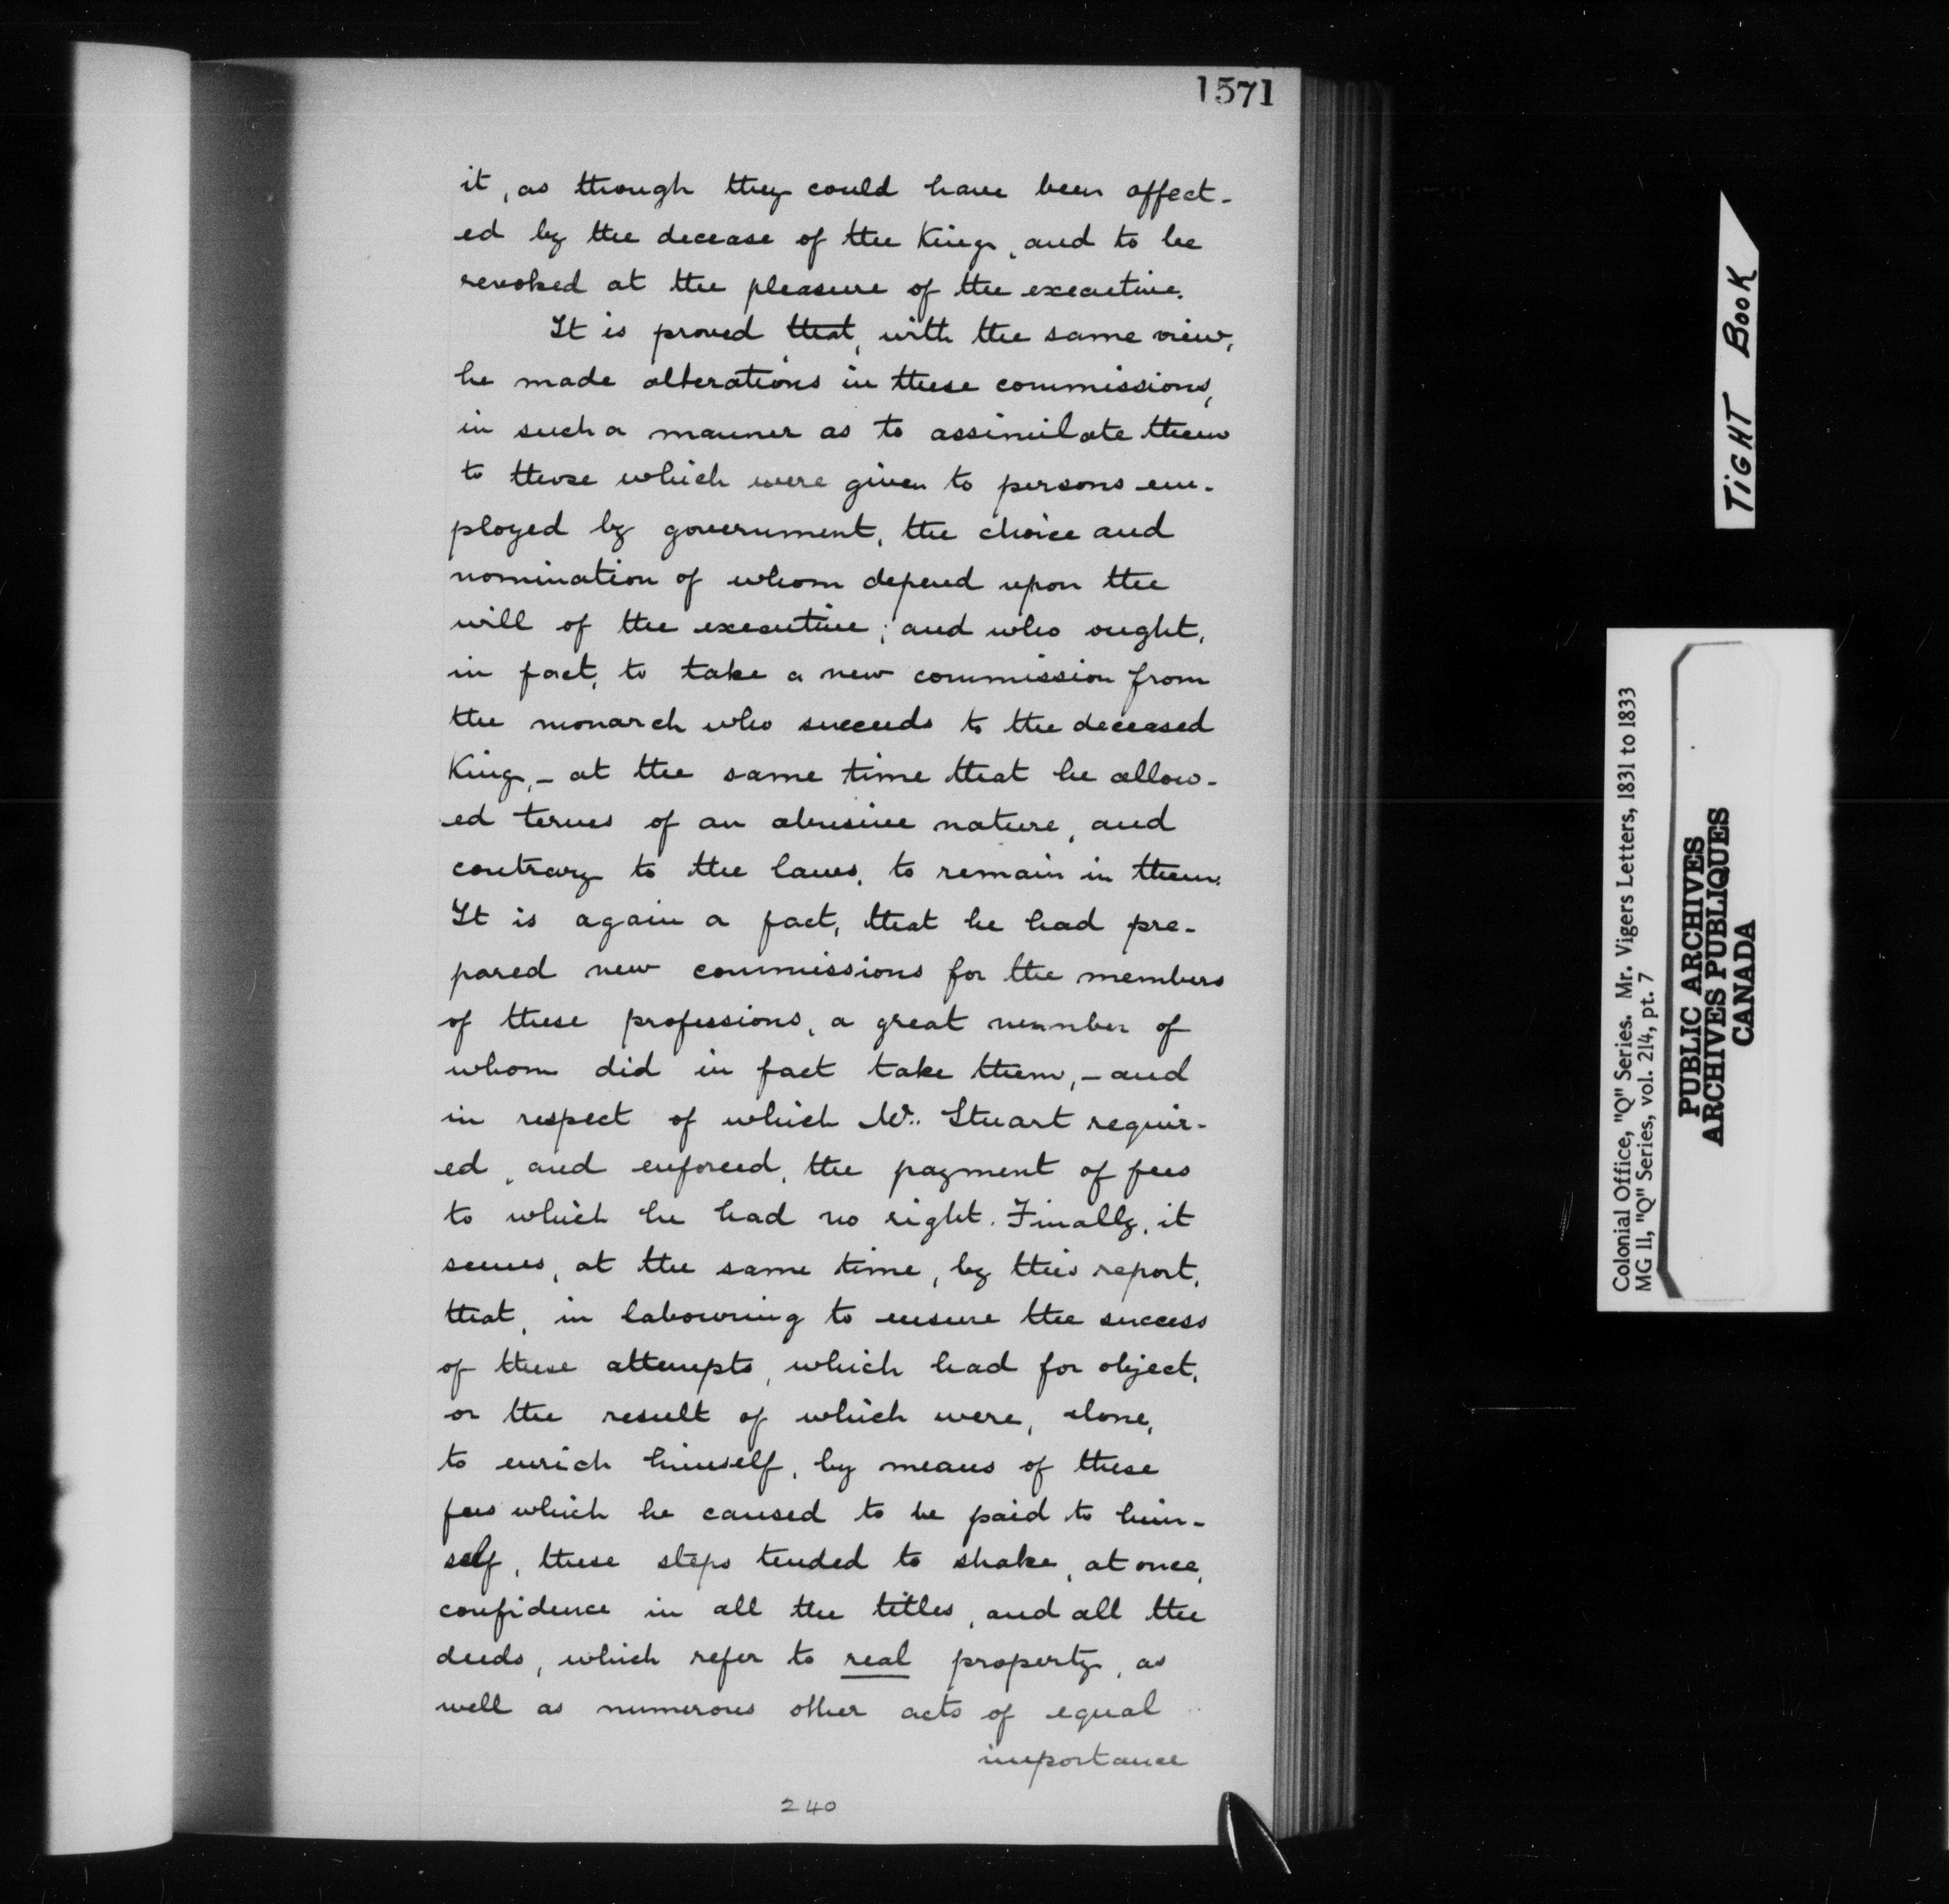 1571
it, as though they could have been affect-
ed by the decease of the King, and to be
revoked at the pleasure of the executive.
It is proved that, with the same view,
he made alterations in these commissions,
in such a manner as to assimilate them
to those which were given to persons em-
ployed by government, the choice and
nomination of whom depend upon the
will of the executive; and who ought,
in fact, to take a new commission from
the monarch who succeeds to the deceased
King, - at the same time that he allow-
ed terms of an abusive nature, and
contrary to the laws, to remain in them.
It is again a fact, that he had pre-
pared new commissions for the members
of these professions, a great number of
whom did in fact take them, - and
in respect of which Mr. Stuart requir-
ed, and enforced, the payment of fees
to which he had no right. Finally, it
seems, at the same time, by this report,
that, in labouring to ensure the success
of these attempts, which had for object,
or the result of which were, alone,
to enrich himself, by means of these
fees which he caused to be paid to him-
self, these steps tended to shake, at once,
confidence in all the titles, and all the
deeds, which refer to real property, as
well as numerous other acts of equal
importance
240
TIGHT BOOK
Colonial Office, "Q" Series. Mr. Vigers Letters, 1831 to 1833
MG 11, "Q" Series, vol. 214, pt. 7
PUBLIC ARCHIVES
ARCHIVES PUBLIQUES
CANADA